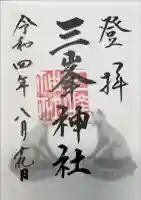 登拝
三峯神社
令和四年
八月十九日